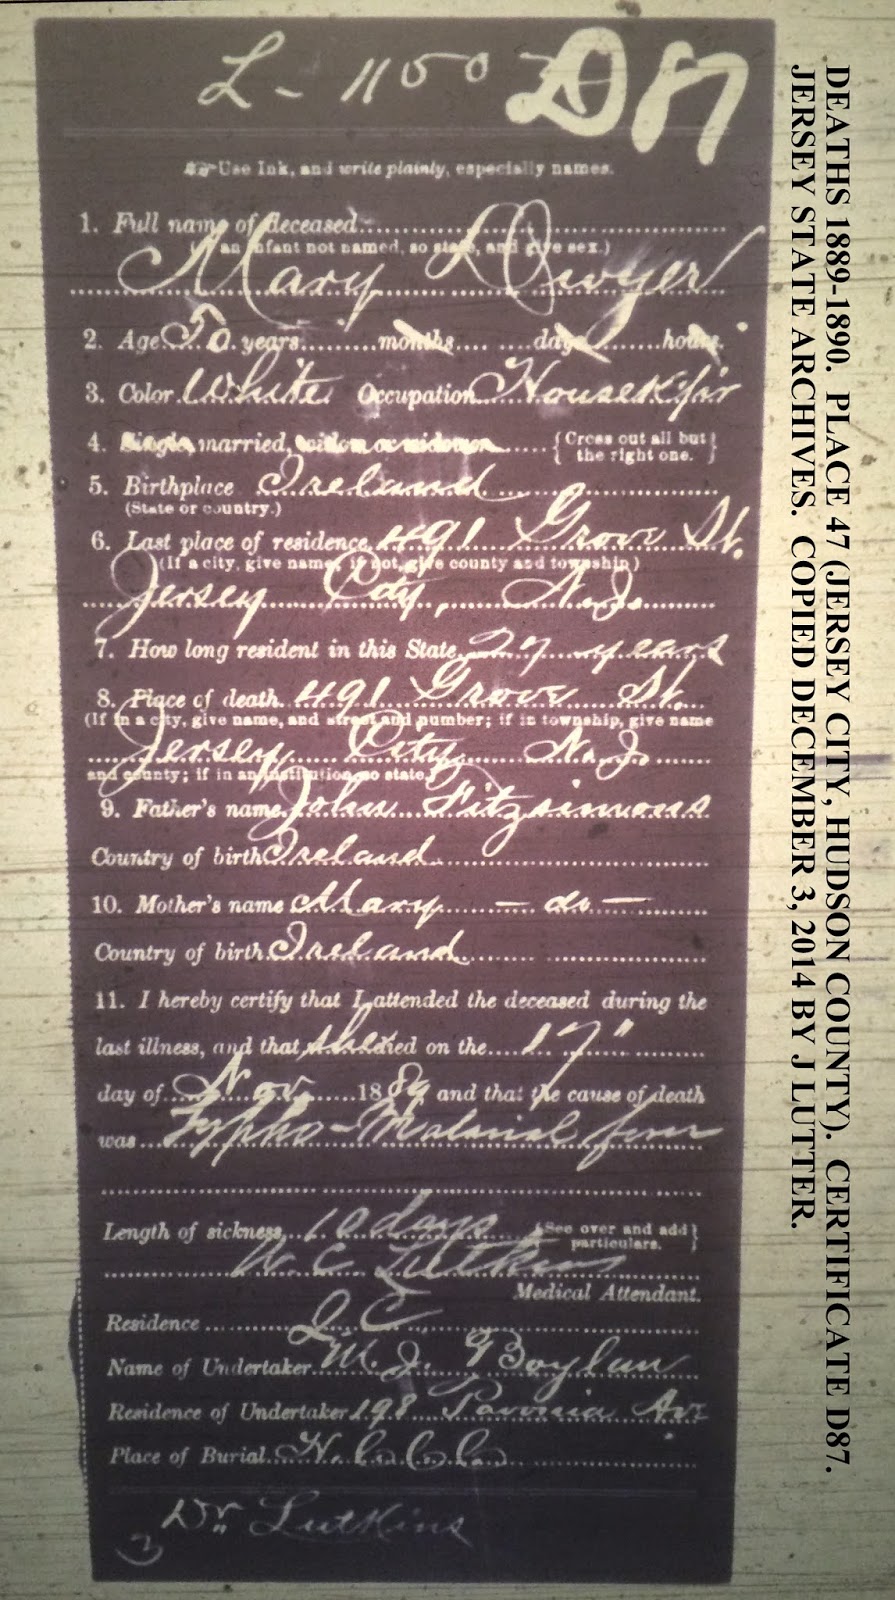 L - 11500 D87
Use Ink, and write plainly, especially names.
1. Full name of deceased
(an infant not named, so state, and give sex.)
Mary Dwyer
2. Age 50 years months days hours.
3. Color White Occupation Housek'pir
4. Single, married, widow or widower {Cross out all but the right one.}
5. Birthplace Ireland
(State or country.)
6. Last place of residence 491 Grove St.
(If a city, give name, if not, give county and township)
Jersey City, N.J.
7. How long resident in this State 27 years
8. Place of death 491 Grove St.
(If in a city, give name, and street and number; if in township, give name
Jersey City N.J.
and county; if in an institution, so state.)
9. Father's name John Fitzsimmons
Country of birth Ireland
10. Mother's name Mary — do —
Country of birth Ireland
11. I hereby certify that I attended the deceased during the
last illness, and that she died on the 17"
day of Nov. 1889 and that the cause of death
was Typho-Malarial fever
Length of sickness 10 days {See over and add particulars.}
W. C. Lutkins
Medical Attendant.
Residence J. C.
Name of Undertaker M. J. Boylan
Residence of Undertaker 198 Pavonia Av.
Place of Burial H. C. C. C.
Dr. Lutkins
3
DEATHS 1889-1890. PLACE 47 (JERSEY CITY, HUDSON COUNTY). CERTIFICATE D87.
JERSEY STATE ARCHIVES. COPIED DECEMBER 3, 2014 BY J LUTTER.